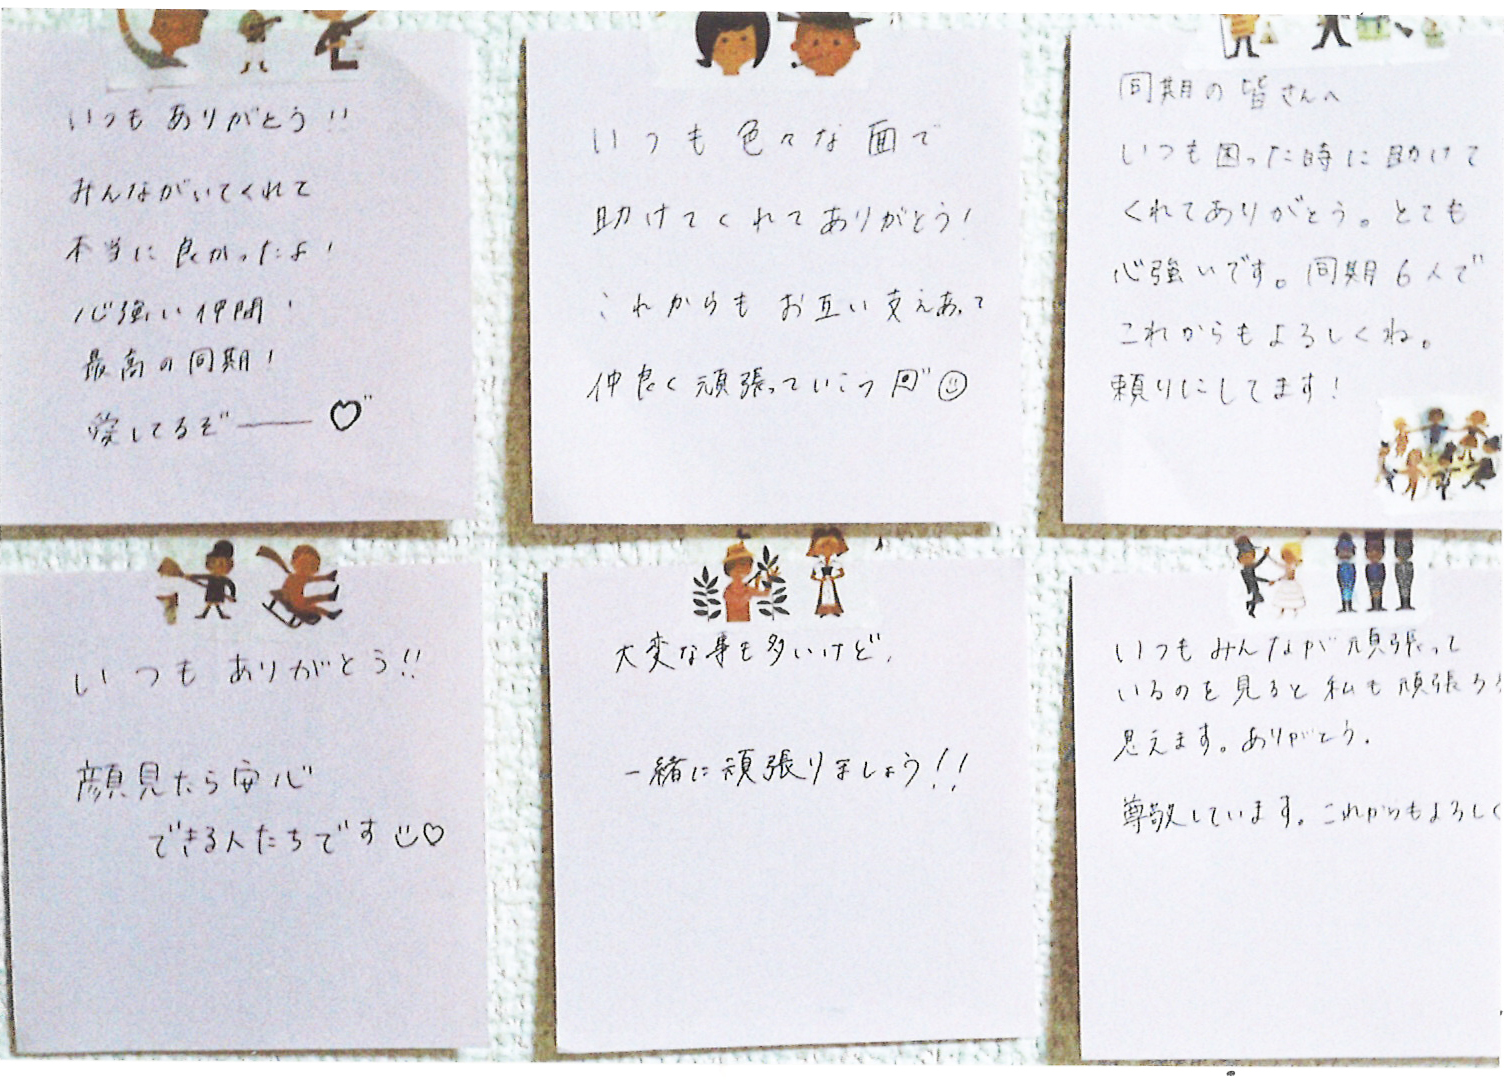 いつもありがとう!!
みんながいてくれて
本当に良かったよ!
心強い仲間!
最高の同期!
愛してるぞ――♡"
いつも色々な面で
助けてくれてありがとう!
これからもお互い支えあって
仲良く頑張っていこう
同期の皆さんへ
いつも困った時に助けて
くれてありがとう。とても
心強いです。同期6人で
これからもよろしくね。
頼りにしてます!
いつもありがとう!!
顔見たら安心
できる人たちです♡
大変な事も多いけど、
一緒に頑張りましょう!!
いつもみんなが頑張って
いるのを見ると私も頑張ろう
思えます。ありがとう。
尊敬しています。これからもよろしく